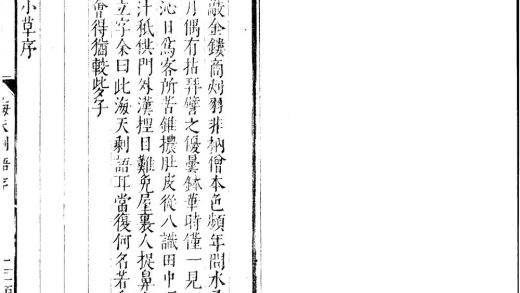 敲金鏤商刻羽非衲僧本色頻年問水
月偶有拈弄譬之優曇鉢華時僅一見
沁日爲客所苦錐擴肚皮從八識田中
汁秪供門外漢揑目難免屋裏人捉鼻
立字余曰此海天剩語耳當復何名若
會得猶較些子
小草序
海天剩語序